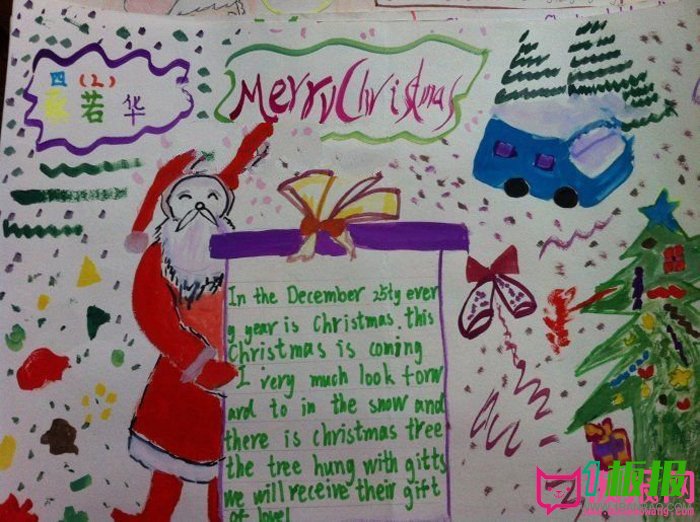 四(2)
若华
Merry Christmas
In the December 25ty ever
y year is Christmas. this
Christmas is coming
I very much look forw
ard to in the snow and
there is christmas tree
the tree hung with gitts
we will receive their gift
of love!
板报